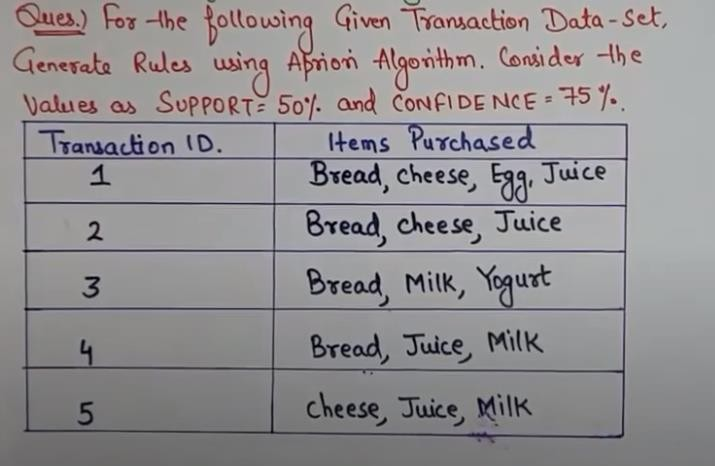 Ques.) For the following Given Transaction Data-set,
Generate Rules using Apriori Algorithm. Consider the
Values as SUPPORT= 50% and CONFIDENCE = 75%.
Transaction ID. Items Purchased
1 Bread, cheese, Egg, Juice
2 Bread, cheese, Juice
3 Bread, Milk, Yogurt
4 Bread, Juice, Milk
5 cheese, Juice, Milk